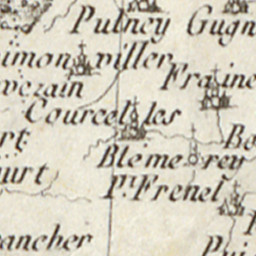 Pulney Gugn
imon viller
Fraine
vezain
Courcelles
rt
Bo
Blemerey
P.t Frenel
urt
ancher
Pui